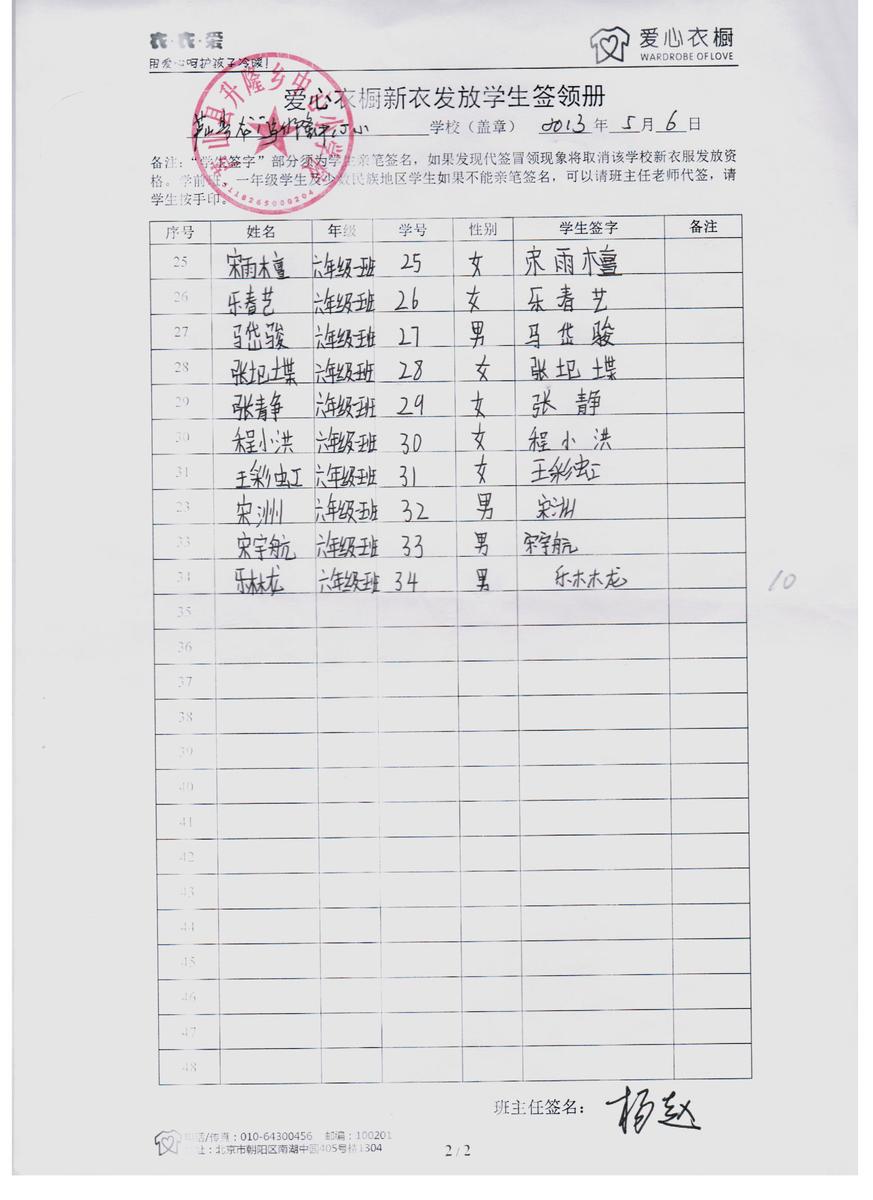 衣·衣·爱
用爱心呵护孩子冷暖！
爱心衣橱
WARDROBE OF LOVE
爱心衣橱新衣发放学生签领册
学校（盖章） 2013 年 5 月 6 日
山县升隆乡中心小学校
5118265000204
备注：“学生签字”部分须为学生亲笔签名，如果发现代签冒领现象将取消该学校新衣服发放资
格。学前班、一年级学生及少数民族地区学生如果不能亲笔签名，可以请班主任老师代签，请
学生按手印。
序号 姓名 年级 学号 性别 学生签字 备注
25 宋雨檀 六年级一班 25 女 宋雨檀
26 乐春艺 六年级一班 26 女 乐春艺
27 马岱骏 六年级一班 27 男 马岱骏
28 张圯堞 六年级一班 28 女 张圯堞
29 张静 六年级一班 29 女 张静
30 程小洪 六年级一班 30 女 程小洪
31 王彩虹 六年级一班 31 女 王彩虹
23 宋洲 六年级一班 32 男 宋洲
33 宋宇航 六年级一班 33 男 宋宇航
34 乐林龙 六年级一班 34 男 乐林龙
10
35
36
37
38
39
40
41
42
43
44
45
46
47
48
班主任签名： 杨赵
电话/传真：010-64300456 邮编：100201
地址：北京市朝阳区南湖中园405号楼1304
2 / 2